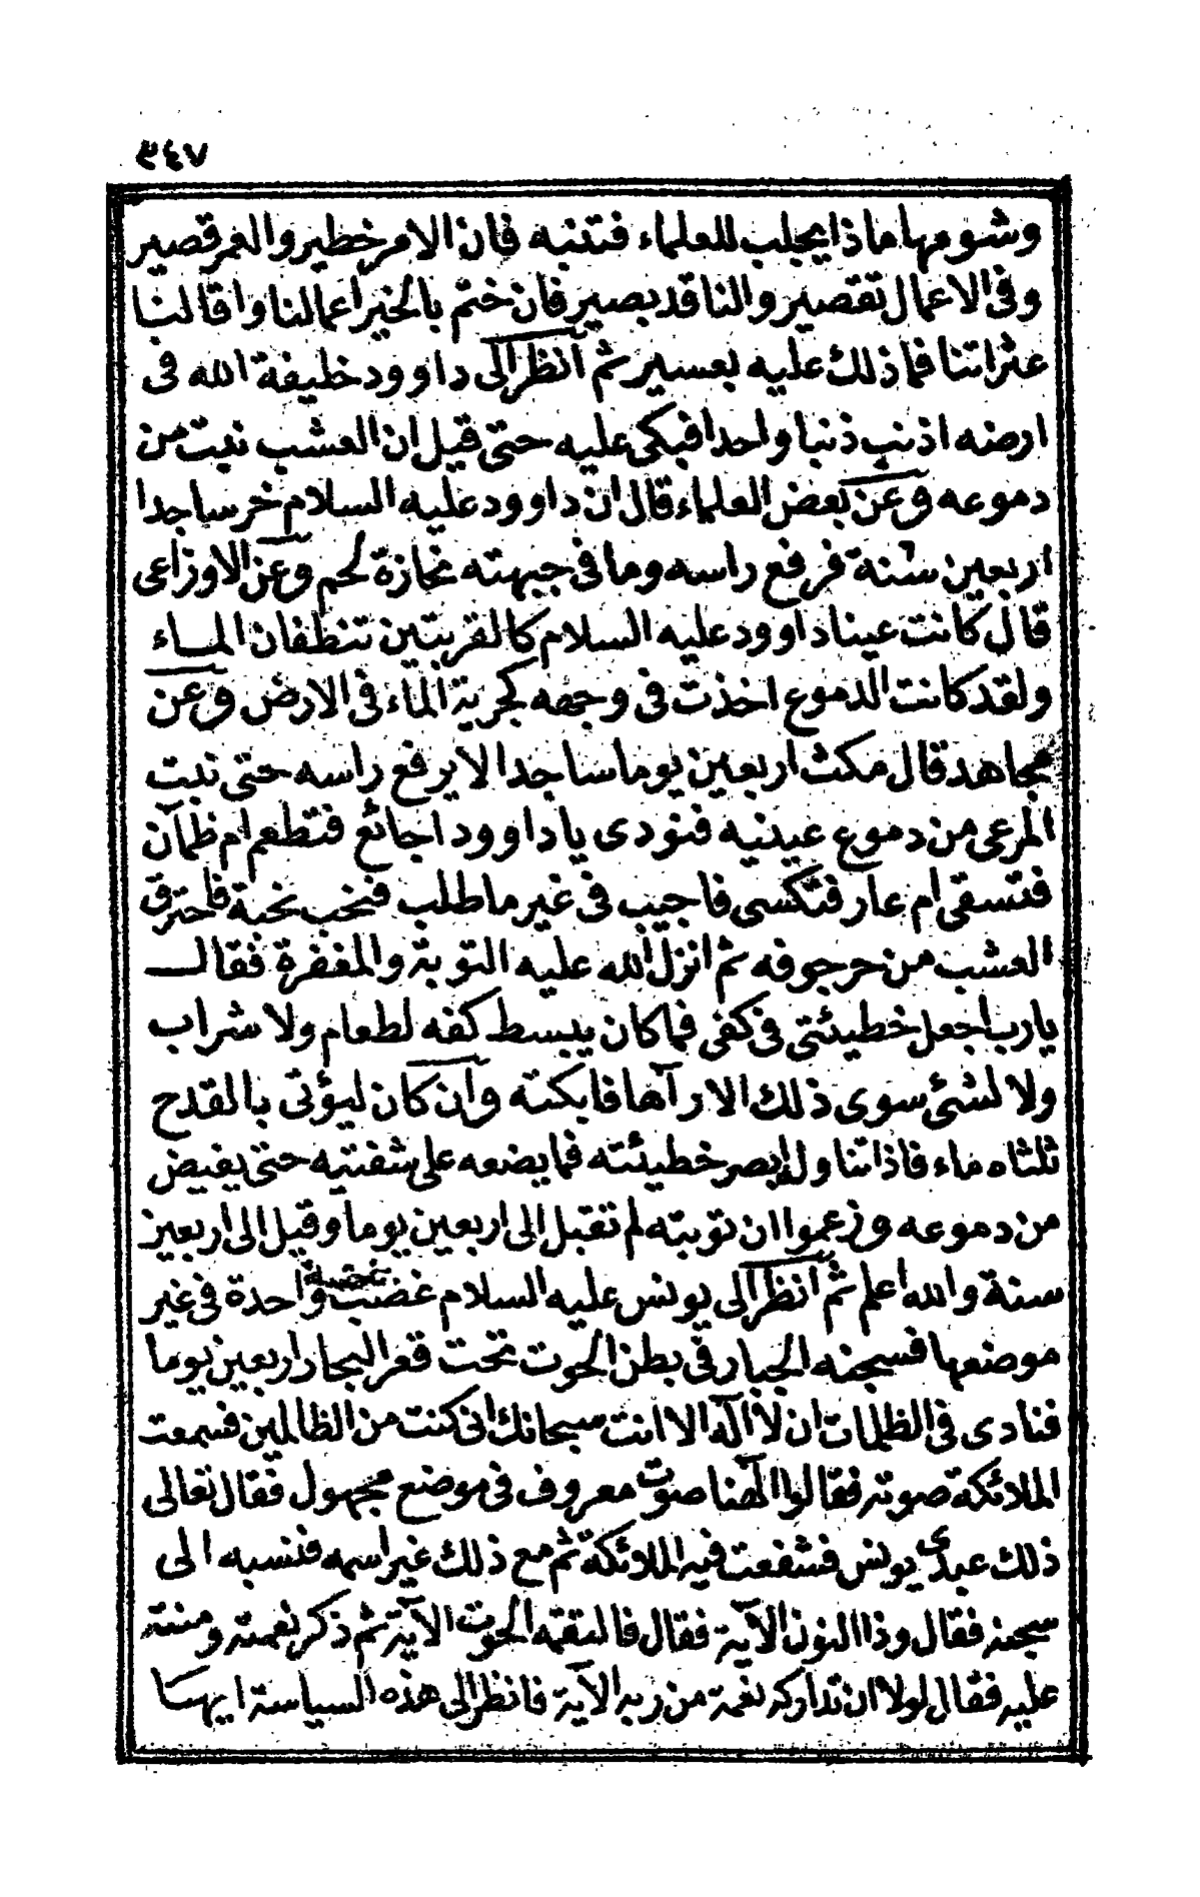 ٣٤٧
وشومها ماذا يجلب للعلماء فتنبه فان الامر خطير والعمر قصير
وفى الاعمال تقصير والناقد بصير فان ختم بالخير اعمالنا واقالنا
عثراتنا فما ذلك عليه بعسير ثم انظر الى داوود خليفة الله فى
ارضه اذنب ذنبا واحدا فبكى عليه حتى قيل ان العشب نبت من
دموعه وعن بعض العلماء قال ان داوود عليه السلام خر ساجدا
اربعين سنة فرفع راسه وما فى جبهته نحازة لحم وعن الاوزاعى
قال كانت عينا داوود عليه السلام كالقربتين تنظفان الماء
ولقد كانت الدموع اخذت فى وجهه كجرية الماء فى الارض وعن
مجاهد قال مكث اربعين يوما ساجدا لا يرفع راسه حتى نبت
المرعى من دموع عينيه فنودى يا داوود اجائع فتطعم ام ظمآن
فتسقى ام عار فتكسى فاجيب فى غير ما طلب فنحب نحبة فاحترق
العشب من حر جوفه ثم انزل الله عليه التوبة والمغفرة فقال
يارب اجعل خطيئتى فى كفى فما كان يبسط كفه لطعام ولا شراب
ولا لشئ سوى ذلك الا رآها فابكته وان كان ليؤتى بالقدح
ثلثاه ماء فاذا تناوله ابصر خطيئته فما يضعه على شفتيه حتى يفيض
من دموعه وزعموا ان توبته لم تقبل الى اربعين يوما وقيل الى اربعين
سنة والله اعلم ثم انظر الى يونس عليه السلام غضب غضبة واحدة فى غير
موضعها فسجنه الجبار فى بطن الحوت تحت قعر البحار اربعين يوما
فنادى فى الظلمات ان لا اله الا انت سبحانك انى كنت من الظالمين فسمعت
الملائكة صوته فقالوا الهنا صوت معروف فى موضع مجهول فقال تعالى
ذلك عبدى يونس فشفعت فيه الملائكة ثم مع ذلك غير اسمه فنسبه الى
سجنه فقال وذا النون الآية فقال فالتقمه الحوت الآية ثم ذكر نعمته ومنته
عليه فقال لولا ان تداركه نعمة من ربه الآية فانظر الى هذه السياسة ايها